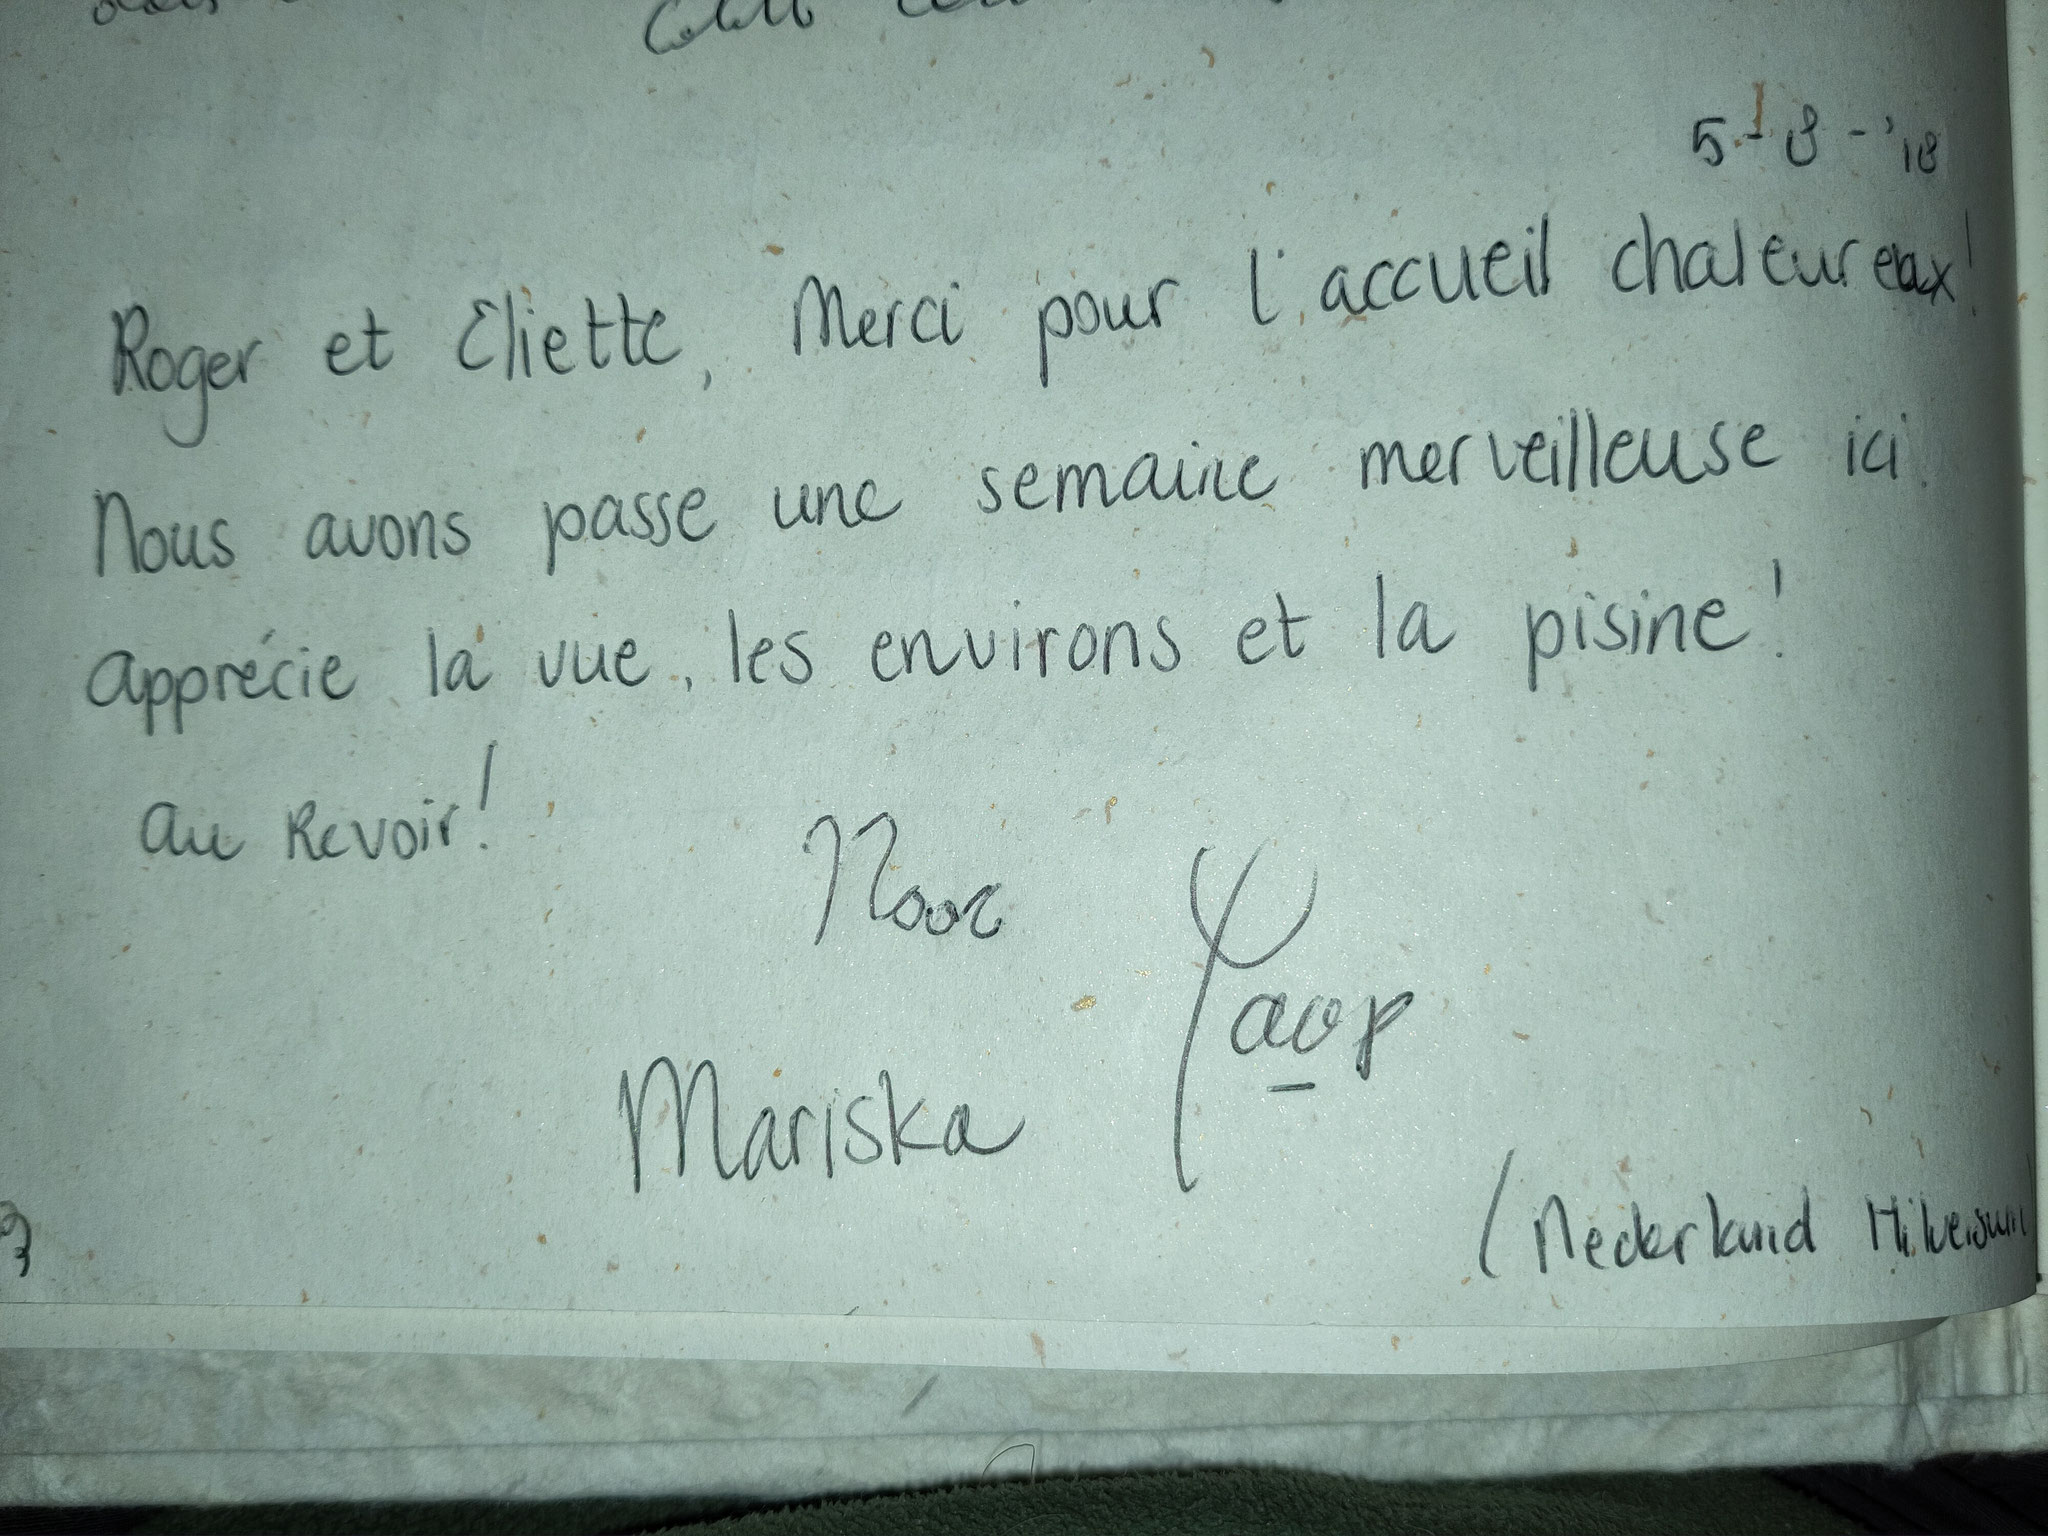 5-8-'18
Roger et Eliette, Merci pour l'accueil chaleureux!
Nous avons passe une semaine merveilleuse ici.
apprécie la vue, les environs et la pisine!
au Revoir!
Noor
Yaap
Mariska
(Nederland Hilversum)